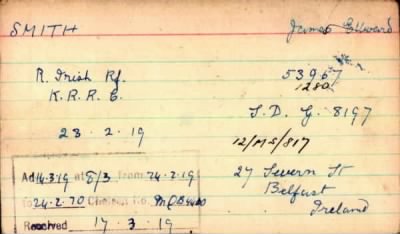 SMITH James Edward
R. Irish Rf. 53967
K.R.R.C. 1280
S.D. G. 8197
23.2.19 12/MS/817
27 Severn St
Belfast
Ireland
Ad 14.3.19 at 8/3 from 24.2.19
to 24.2.70 Chelsea No.
Received 17.3.19